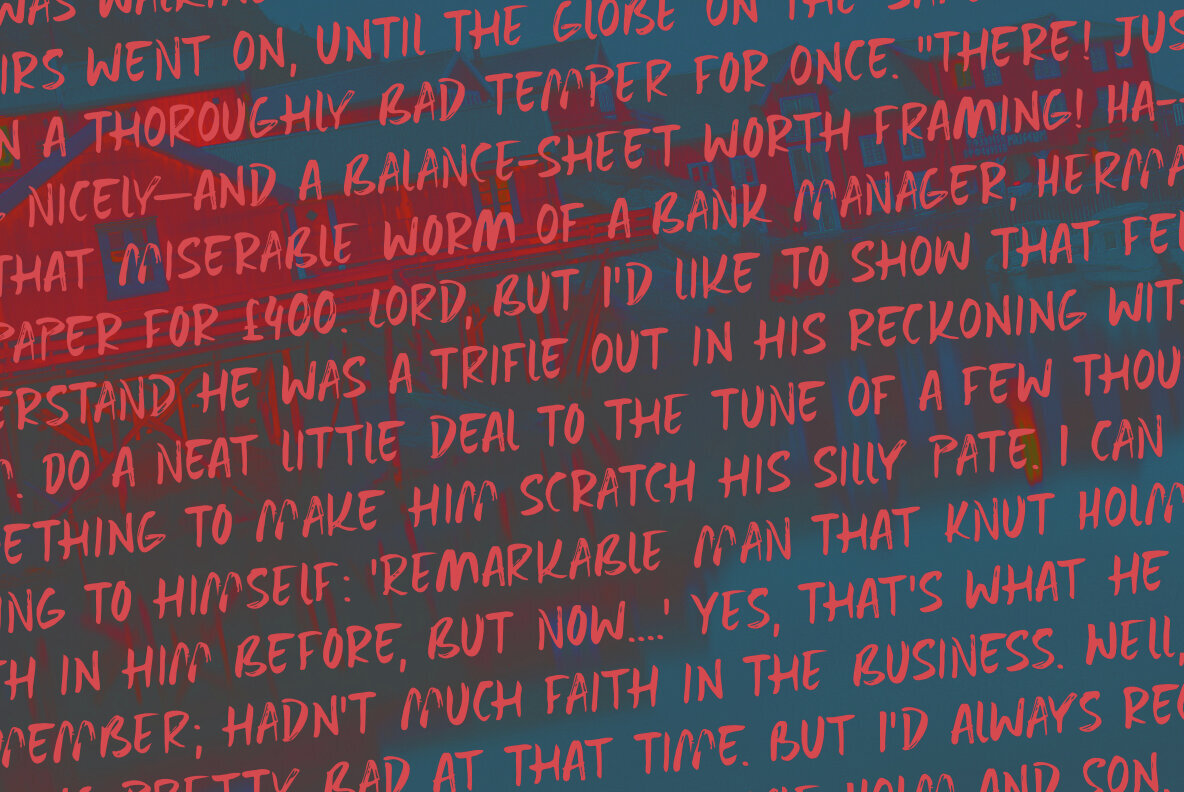 WAS WALKING
IRS WENT ON, UNTIL THE GLOBE ON THE
N A THOROUGHLY BAD TEMPER FOR ONCE. "THERE! JUS
NICELY—AND A BALANCE-SHEET WORTH FRAMING! HA-
THAT MISERABLE WORM OF A BANK MANAGER, HERMA
PAPER FOR £400. LORD, BUT I'D LIKE TO SHOW THAT FEL
ERSTAND HE WAS A TRIFLE OUT IN HIS RECKONING WIT
. DO A NEAT LITTLE DEAL TO THE TUNE OF A FEW THOU
METHING TO MAKE HIM SCRATCH HIS SILLY PATE. I CAN
ING TO HIMSELF: 'REMARKABLE MAN THAT KNUT HOLM
TH IN HIM BEFORE, BUT NOW....' YES, THAT'S WHAT HE
MEMBER; HADN'T MUCH FAITH IN THE BUSINESS. WELL,
PRETTY BAD AT THAT TIME. BUT I'D ALWAYS REC
HOLM AND SON,